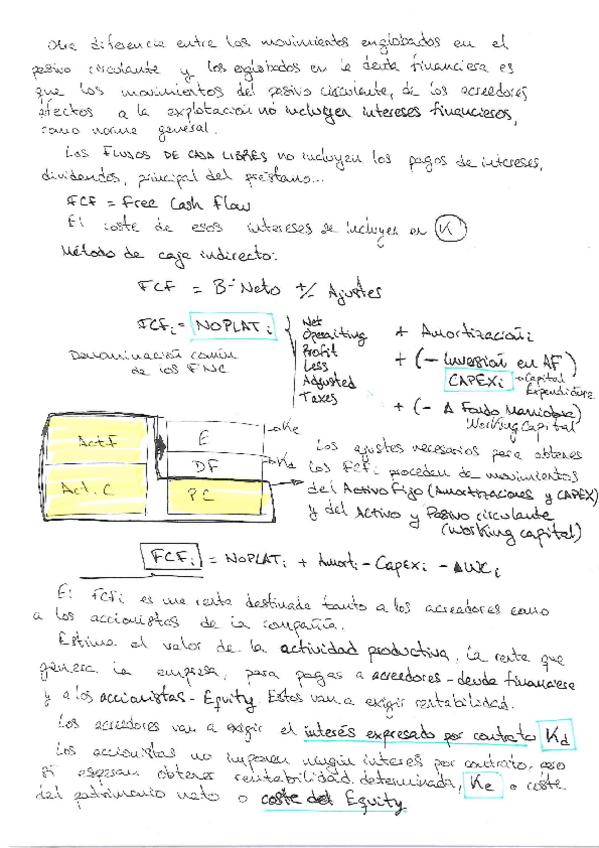 Otra diferencia entre los movimientos englobados en el
pasivo circulante y los englobados en la deuda financiera es
que los movimientos del pasivo circulante, de los acreedores
afectos a la explotación no incluyen intereses financieros,
como norma general.
Los FLUJOS DE CAJA LIBRES no incluyen los pagos de intereses,
dividendos, principal del préstamo...
FCF = Free Cash Flow
El coste de esos intereses se incluyen en K
Método de caja indirecto:
FCF = Bº Neto +/- Ajustes
FCFi = NOPLATi
Net
Operating
Profit
Less
Adjusted
Taxes
+ Amortizacióni
+ (- Inversión en AF)
CAPEXi → Capital
Expenditure
+ (- Δ Fondo Maniobra)
Working Capital
Denominación común
de los FNC
Act F
E
→ Ke
DF
→ Kd
Act. C
PC
Los ajustes necesarios para obtener
los FCFi proceden de movimientos
del Activo Fijo (Amortizaciones y CAPEX)
y del Activo y Pasivo circulante
(Working capital)
FCFi = NOPLATi + Amorti - Capexi - ΔWCi
El FCFi es una renta destinada tanto a los acreedores como
a los accionistas de la compañía.
Estima el valor de la actividad productiva, la renta que
genera la empresa, para pagar a acreedores - deuda financiera
y a los accionistas - Equity. Estos van a exigir rentabilidad.
Los acreedores van a exigir el interés expresado por contrato Kd
Los accionistas no imponen ningún interés por contrato, eso
sí esperan obtener rentabilidad determinada, Ke o coste
del patrimonio neto o coste del Equity